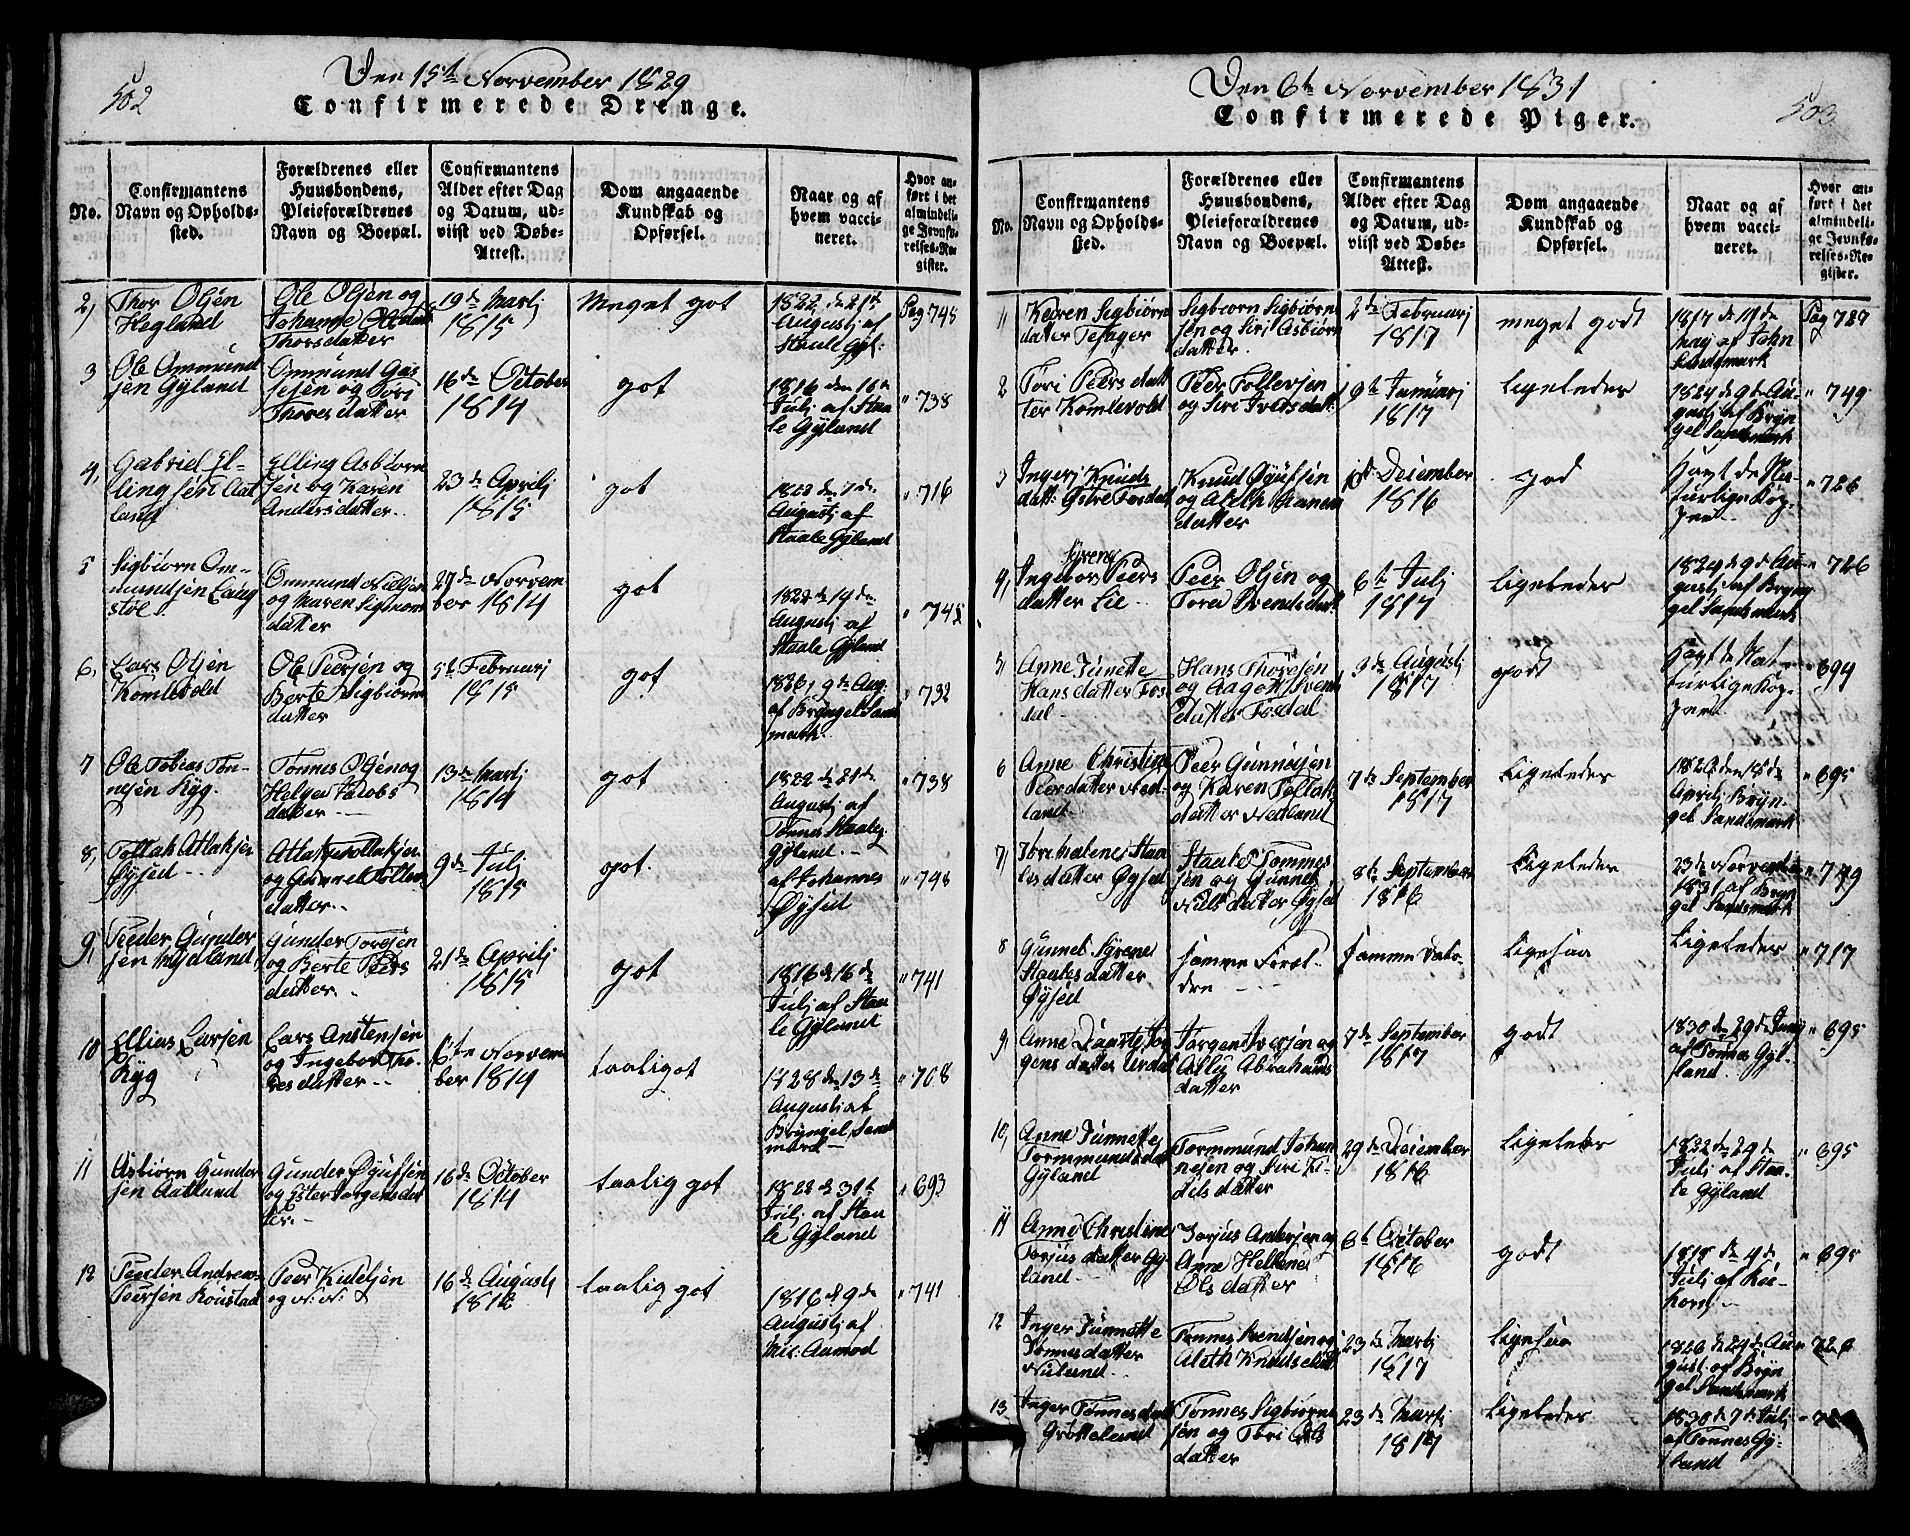 502
Den 15t Norvember 1829
Confirmerede Drenge.
No.
Confirmantens
Navn og Opholds-
sted.
Forældrenes eller
Huusbondens,
Pleieforældrenes
Navn og Boepæl.
Confirmantens
Alder efter Dag
og Datum, ud-
viist ved Døbe-
Attest.
Dom angaaende
Kundskab og
Opførsel.
Naar og af
hvem vacci-
neret.
Hvor an-
ført i det
almindeli-
ge Jevnfø-
relses-Re-
gister.
2,
Thor Olsen
Hegland
Ole Olsen og
Johanne
Thorsdatter
19de Martj
1815
Meget got
1822 de 21t
Augustj af
Staale Gyl:
Pag 745
3
Ole Ommund
sen Gyland
Ommund Gas
sesen og Tori
Thores datter
16de October
1814
got
1816 den 16de
Julj af Staa
le Gyland
" 738
4,
Gabriel El-
lingsen Aat
land
Elling Asbiørn
sen og Karen
Anders datter.
23de Aprilj
1815
got
1822 de 7de
Augustj af
Staale Gyland
" 716
5
Sigbiørn Om-
mundsen Laug
støl.
Ommund Nielsen
og Maren Sigmun
datter
27de Norvem
ber 1814
got
1822 de 14de
Augustj af
Staale Gyland
" 745
6,
Lars Olsen
Komlevold
Ole Peersen og
Berte Sigbiørns
datter
5t Februarj
1815
got
1826, 9de Aug.
af Bryngel Sand
smark.
" 732
7
Ole Tobias Tøn-
nesen Kyg.
Tønnes Olsen og
Helge Jacobs
datter. --
13de Martj
1814
got
1822 de 21de
Augustj af
Tønnes Staale
Gyland. -
" 738
8,
Tollak Atlaksen
Øysed --
Atlak Tollaksen
og Gunnel Tolles
datter..
9de Julj
1815
got.
af Johannes
Øysed
" 748
9,
Peeder Gunder
sen Mydland,
Gunder Tores­en
og Berte Peers
datter.
21de Aprilj
1815
got
1816 de 16de
Julj af Staa
le Gyland
" 741
10
Ellias Larsen
Kyg
Lars Anstensen
og Ingebor Tho
res datter --
6te Norvem
ber 1814
taaligot
1828 de 13de
Augustj af
Bryngel Sand
mark -
" 708
11
Asbiørn Gunder
sen Aatland
Gunder Øyufsen
og Ester Jørgensdat
ter. -
16de October
1814
taalig got
1822 de 31t
Julj af Staa
le Gyland
" 693
12
Peeder Andreas
Peersen Røustad
Peer Kidelsen
og N: N:
16de Augustj
1812
taalig got
1816 d 9de
Augustj af
Nil: Aamod
" 741
503
Den 6t Norvember 1831
Confirmerede Piger.
No.
Confirmantens
Navn og Opholds-
sted.
Forældrenes eller
Huusbondens,
Pleieforældrenes
Navn og Boepæl.
Confirmantens
Alder efter Dag
og Datum, ud-
viist ved Døbe-
Attest.
Dom angaaende
Kundskab og
Opførsel.
Naar og af
hvem vacci-
neret.
Hvor an-
ført i det
almindeli-
ge Jevnfø-
relses-Re-
gister.
1
Karen Sigbiørn
datter Tesager
Sigbiørn Sigbiørn
sen og Siri Asbiørn
datter.
2de Februarj
1817
meget godt
1817 de 17de
Maj af John
Sandsmark
Pag 727
2
Tori Peers dat
ter Komlevold
Peer Tollevsen
og Siri Ivers datt:
9t Januarj
1817
Ligeleder
1824 d 9de Au-
gustj af Bryn
gel Sandsmark
" 749
3
Ingerj Knuds
datt: Østre Fosdal
Knud Øyufsen
og Aleth
datter
1st Deiember
1816
god
Havt de Na-
turlige Kop-
per.
" 726
4,
Syrena
Ingebor Peers
datter Lie
Peer Olsen og
Tora Svends dat:
6t Julj
1817
Ligeleder
1824 d 9de Au-
gustj af Bryn
gel Sandsmark
" 726
5,
Anne Junette
Hans datter Fos
dal
Hans Thoresen
og Aagot Svend
datter Fosdal
3de Augustj
1817
godt
Havt de Nat-
turlige Kop-
per.
" 694
6
Anne Christine
Peers datter Ned-
land.
Peer Gunnersen
og Karen Tollak
datter Nedland
7de September
1817
Ligeleder
Aprilj Bryn-
gel Sandsmark
" 695
7,
Tori Malene Staa
les datter Øysed
Staale Tønnes
sen og Gunnel
Nils datter Øysed
8t September
1816
Ligeleder
23de Norvember
1831 af Bryn
gel Sandsmark
" 749
8
Gunnel Syrene
Staales datter
Øysed
samme Foræl-
dre ---
samme Dato-
Ligesaa
Ligeleder
" 717
9,
Anne Daarte Jør
gens datter Urdal
Jørgen Iversen og
Aslu Abrahams
datter
7de September
1817
godt
1830 de 29de Junj
af Tønnes Gyl-
land.
" 695
10,
Anne Junette
Tormmunds dat
Gyland
Tormmund Johan
nesen og Siri Ki-
dils datter
29de Deiember
1816
Ligeleder
1822 de 29de
Julj af Staa-
le Gyland
" 695
11
Anne Christine
Torjus datter Gy-
land.
Torjus Andersen og
Anne Hellene
Ols datter
6t October
1816
godt
1818 de 4de
Julj af
" 695
12
Inger Junette
Tønnes datter
Nuland.
Tønnes Svendsen og
Aleth Knuds datt
23de Martj
1817
Ligesaa
1826 de 29de Au
gust. og Bryn
gel Sandsmark
13
Inger Tønnes dat
Grøtteland
Tønnes Sigbiørn
sen og Tori Ols
datter
23de Martj
1817
Ligeleder
1830 de 7de Julj
af Tønnes Gy-
land